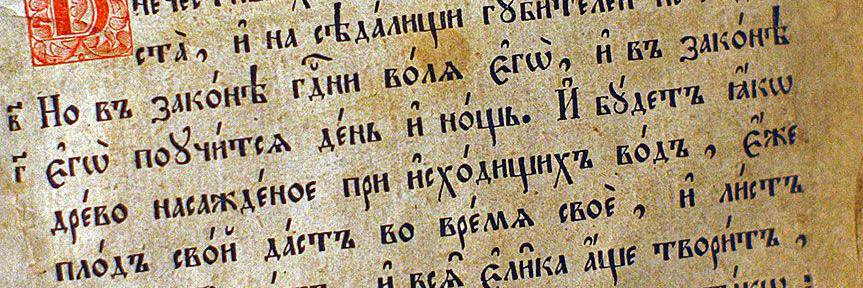 ста̀, и҆ на сѣда́лищи гꙋби́телей
в҃ Но въ зако́нѣ гдⷭ҇ни во́лѧ є҆гѡ̀, и҆ въ зако́нѣ
г҃ є҆гѡ̀ поꙋчи́тсѧ де́нь и҆ но́щь. И҆ бꙋ́детъ ꙗ҆́кѡ
дре́во насажде́ное при и҆схо́дищихъ во́дъ, є҆́же
пло́дъ сво́й да́стъ во вре́мѧ своѐ, и҆ ли́стъ
и҆ всѧ̑ є҆ли̑ка а҆́ще твори́тъ,